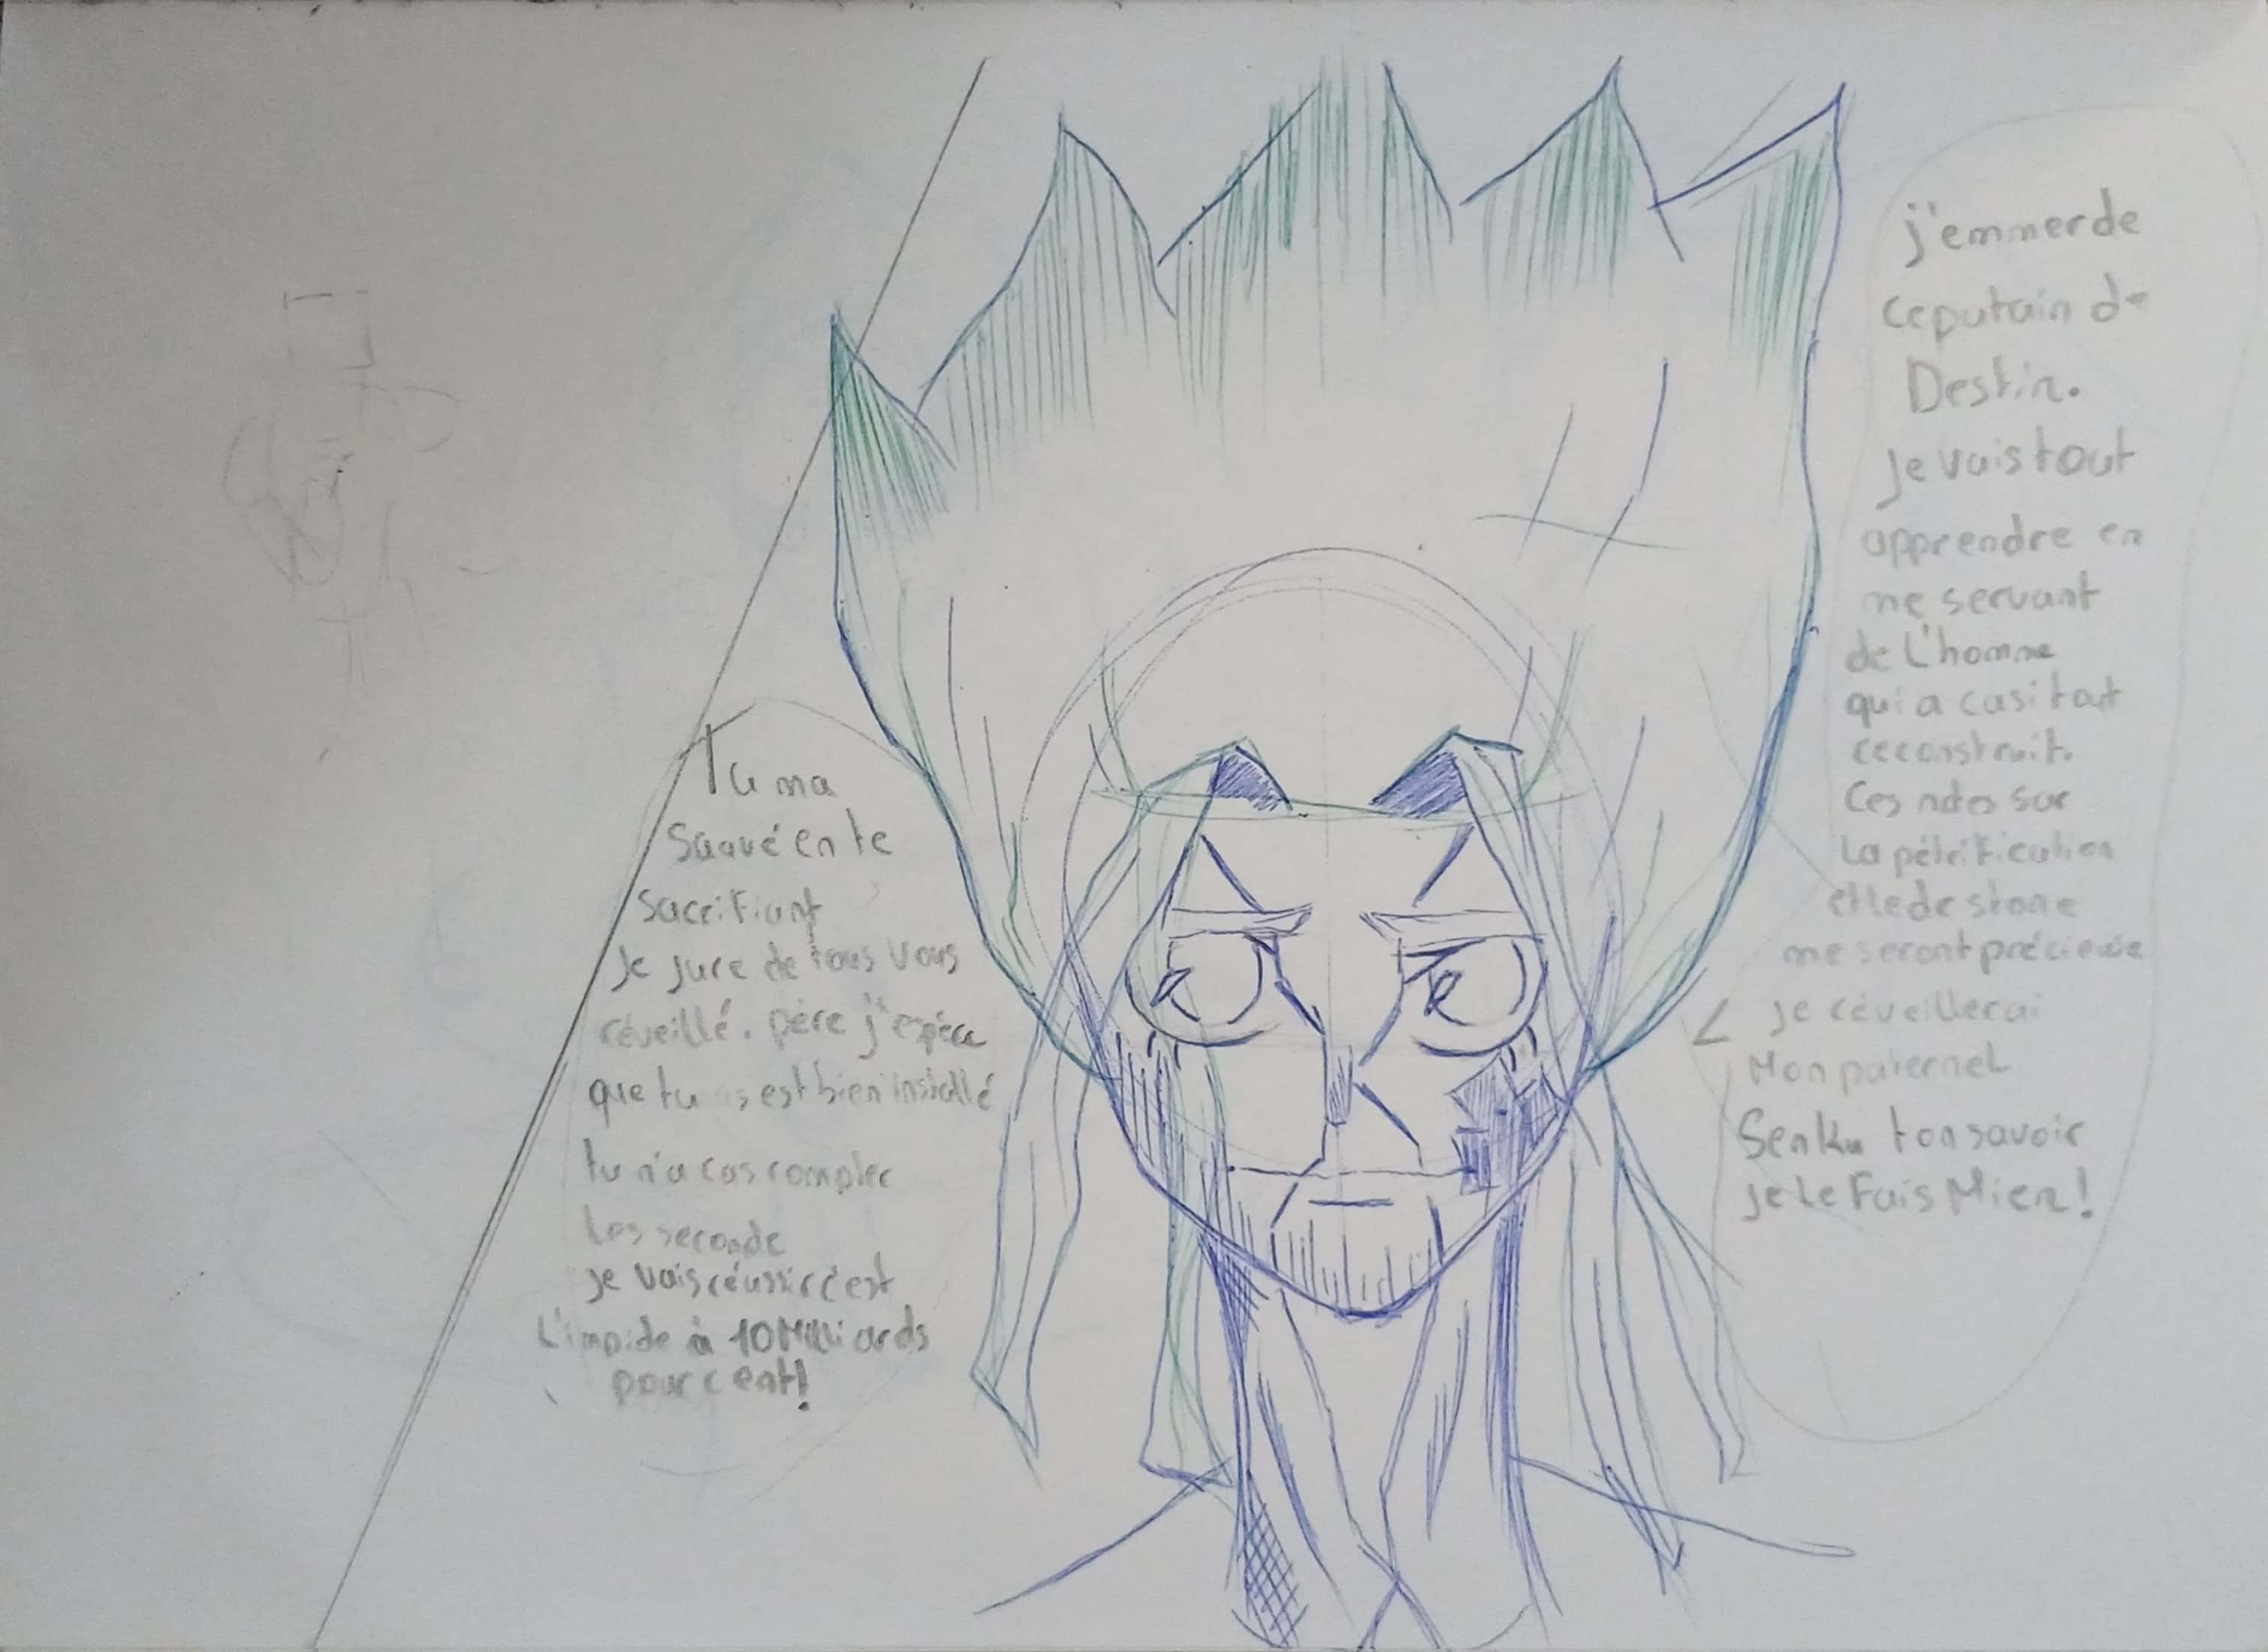 Tu ma
sauvé en te
sacrifiant
Je jure de tous vous
réveillé. père j'espère
que tu est bien installé
tu n'a cas compter
les seconde
je vais réussir c'est
L'impide à 10 Milliards
pour cent!
j'emmerde
ce putain de
Destin.
Je vais tout
apprendre en
me servant
de L'homme
qui a casi tout
reconstruit.
Ces notes sur
la pétrification
et le dr stone
me seront précieuse
je réveillerai
Mon paternel
Senku ton savoir
je le Fais Mien!